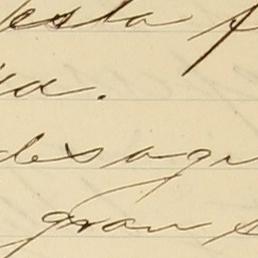 esta
a.
desag
gran